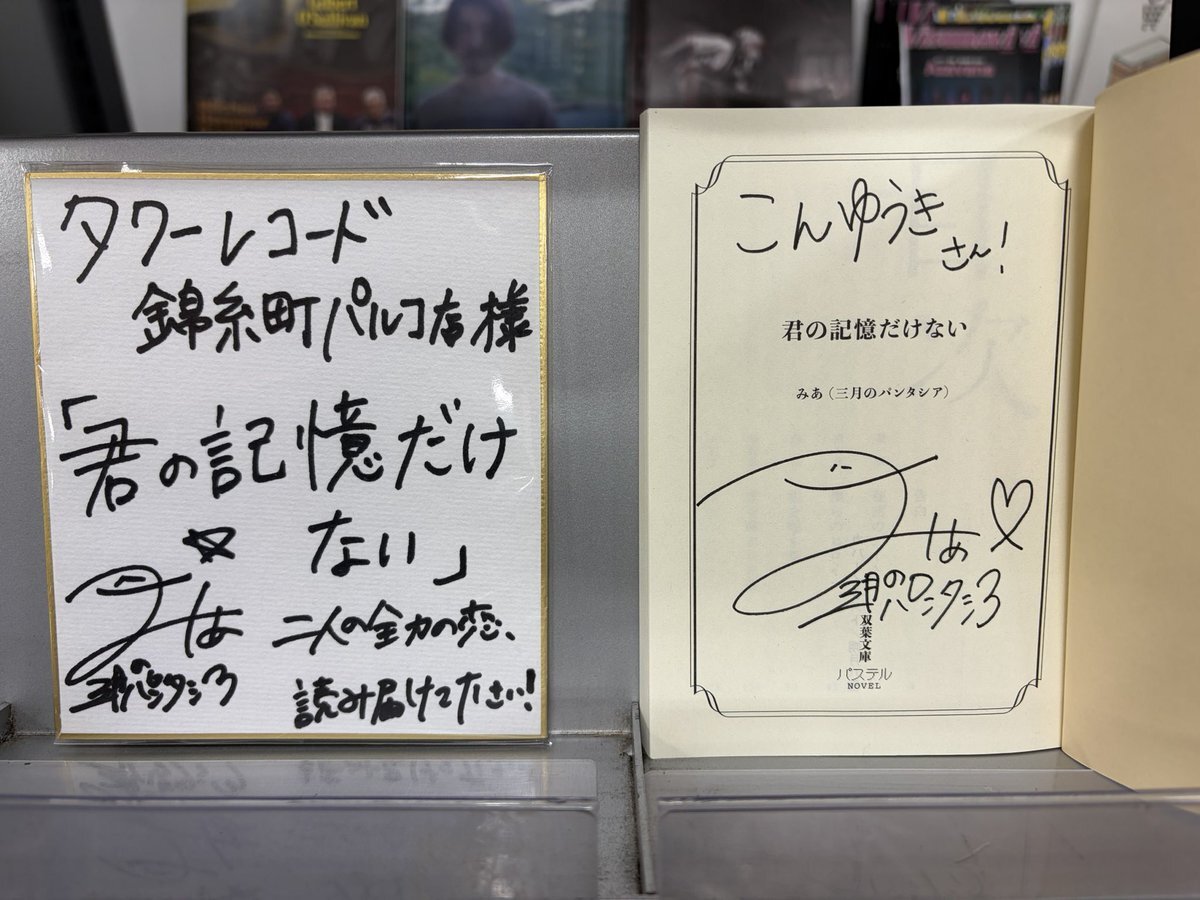 タワーレコード
錦糸町パルコ店様
「君の記憶だけ
ない」
みあ
三月のパンタシア
二人の全力の恋、
読み届けてください!
こんゆうき
さん!
君の記憶だけない
みあ(三月のパンタシア)
みあ
三月のパンタシア
双葉文庫
パステル
NOVEL
Gilbert
O'Sullivan